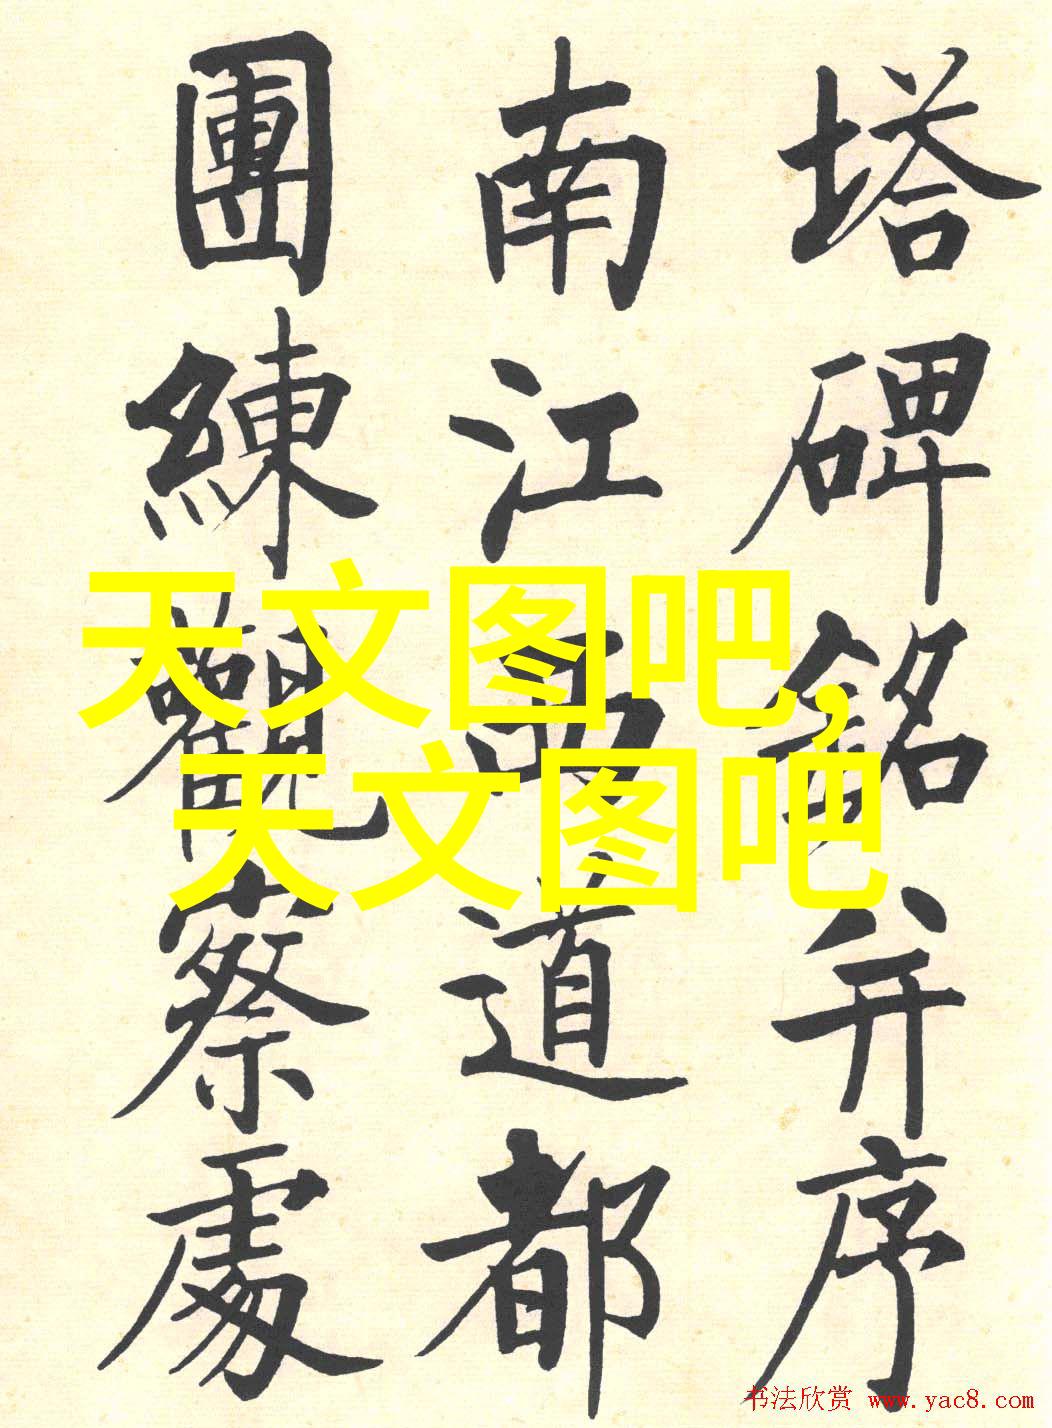 塔碑銘并序
南江道都
團練觀察處
天文图吧,
天文图吧
书法欣赏 www.yac8.com